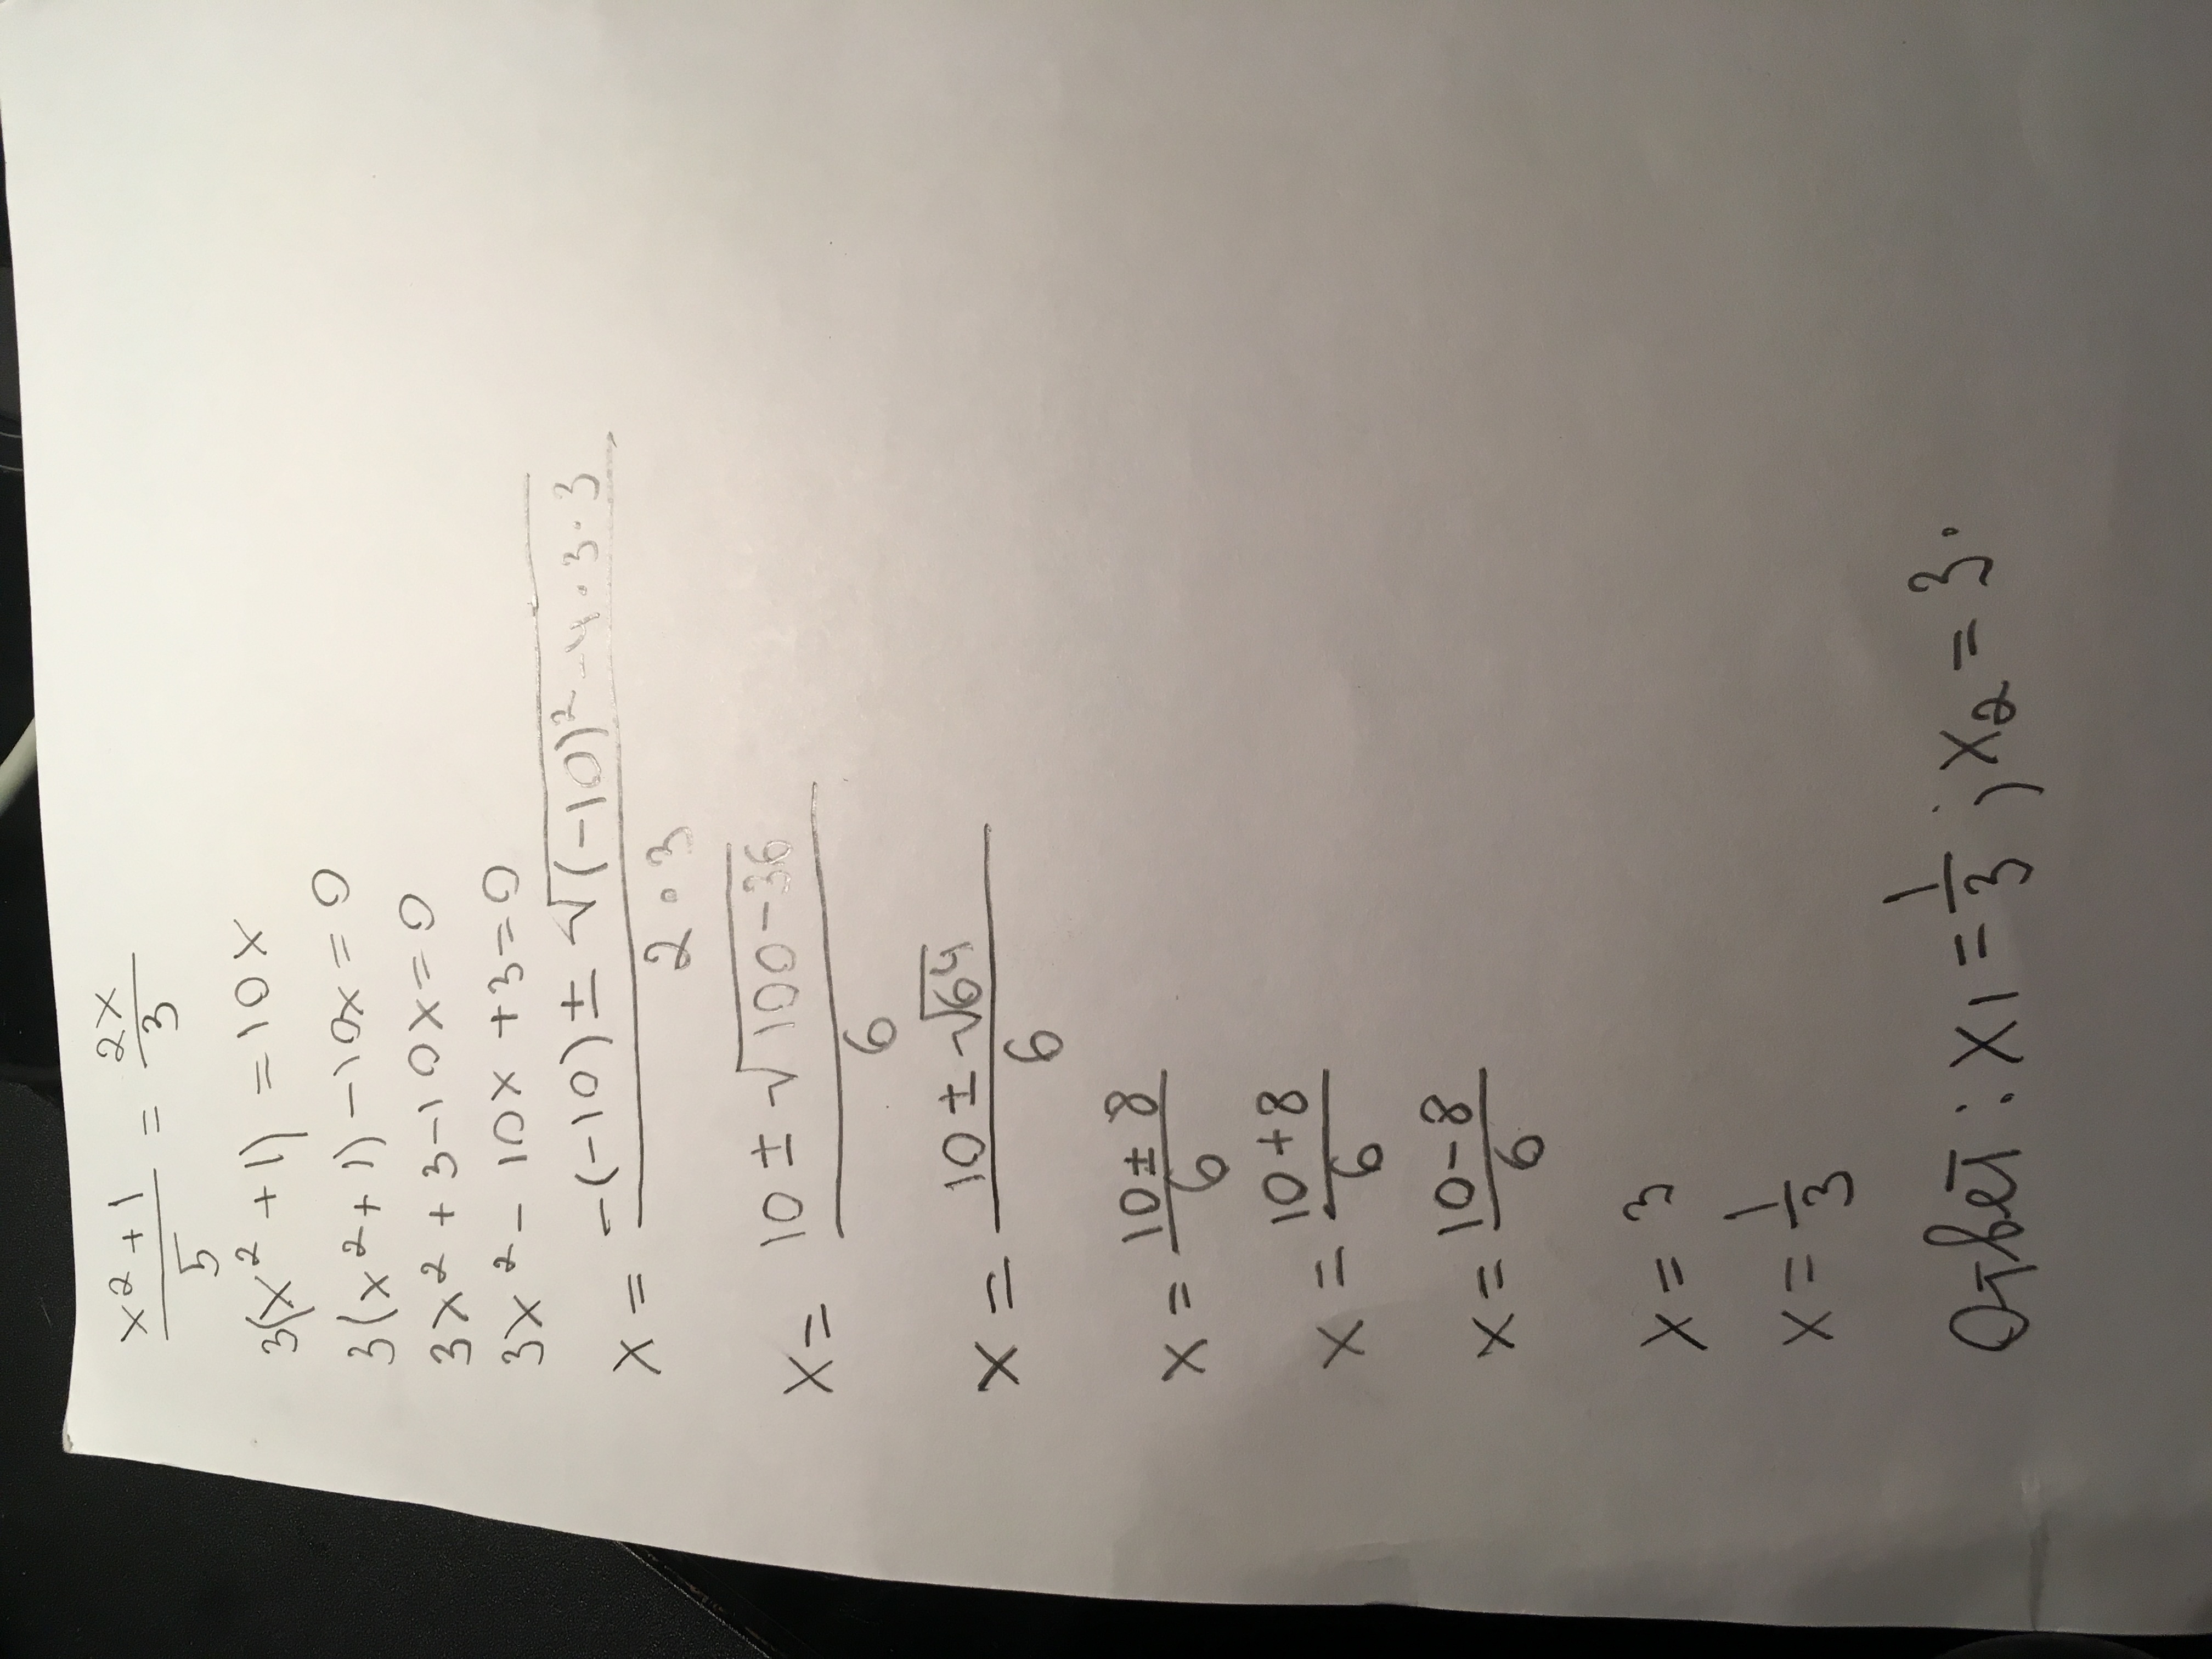 (x²+1)/5 = 2x/3
3(x²+1) = 10x
3(x²+1)-10x=0
3x²+3-10x=0
3x²-10x+3=0
x = (-(-10)±√((-10)²-4·3·3))/(2·3)
x = (10±√(100-36))/6
x = (10±√64)/6
x = (10±8)/6
x = (10+8)/6
x = (10-8)/6
x = 3
x = 1/3
Ответ: x1 = 1/3; x2 = 3.